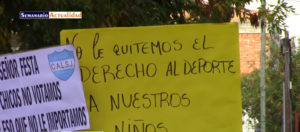 Semanario Actualidad
No LE QUITEMOS EL
DERECHO AL DEPORTE
A NUESTROS
NIÑOS
SEÑOR FESTA
CHICOS NO VOTAMOS
ESO QUE NO LE IMPORTAMOS
C.A.L.S.J.